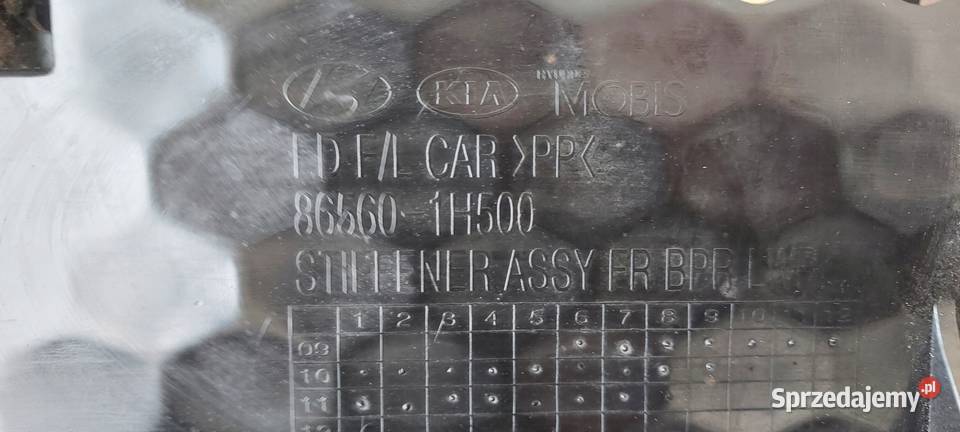 KIA HYUNDAI MOBIS
ED F/L CAR >PP<
86560-1H500
STIFFENER ASSY FR BPR LWR
1 2 3 4 5 6 7 8 9 10 11 12
09
10
11
12
Sprzedajemy.pl